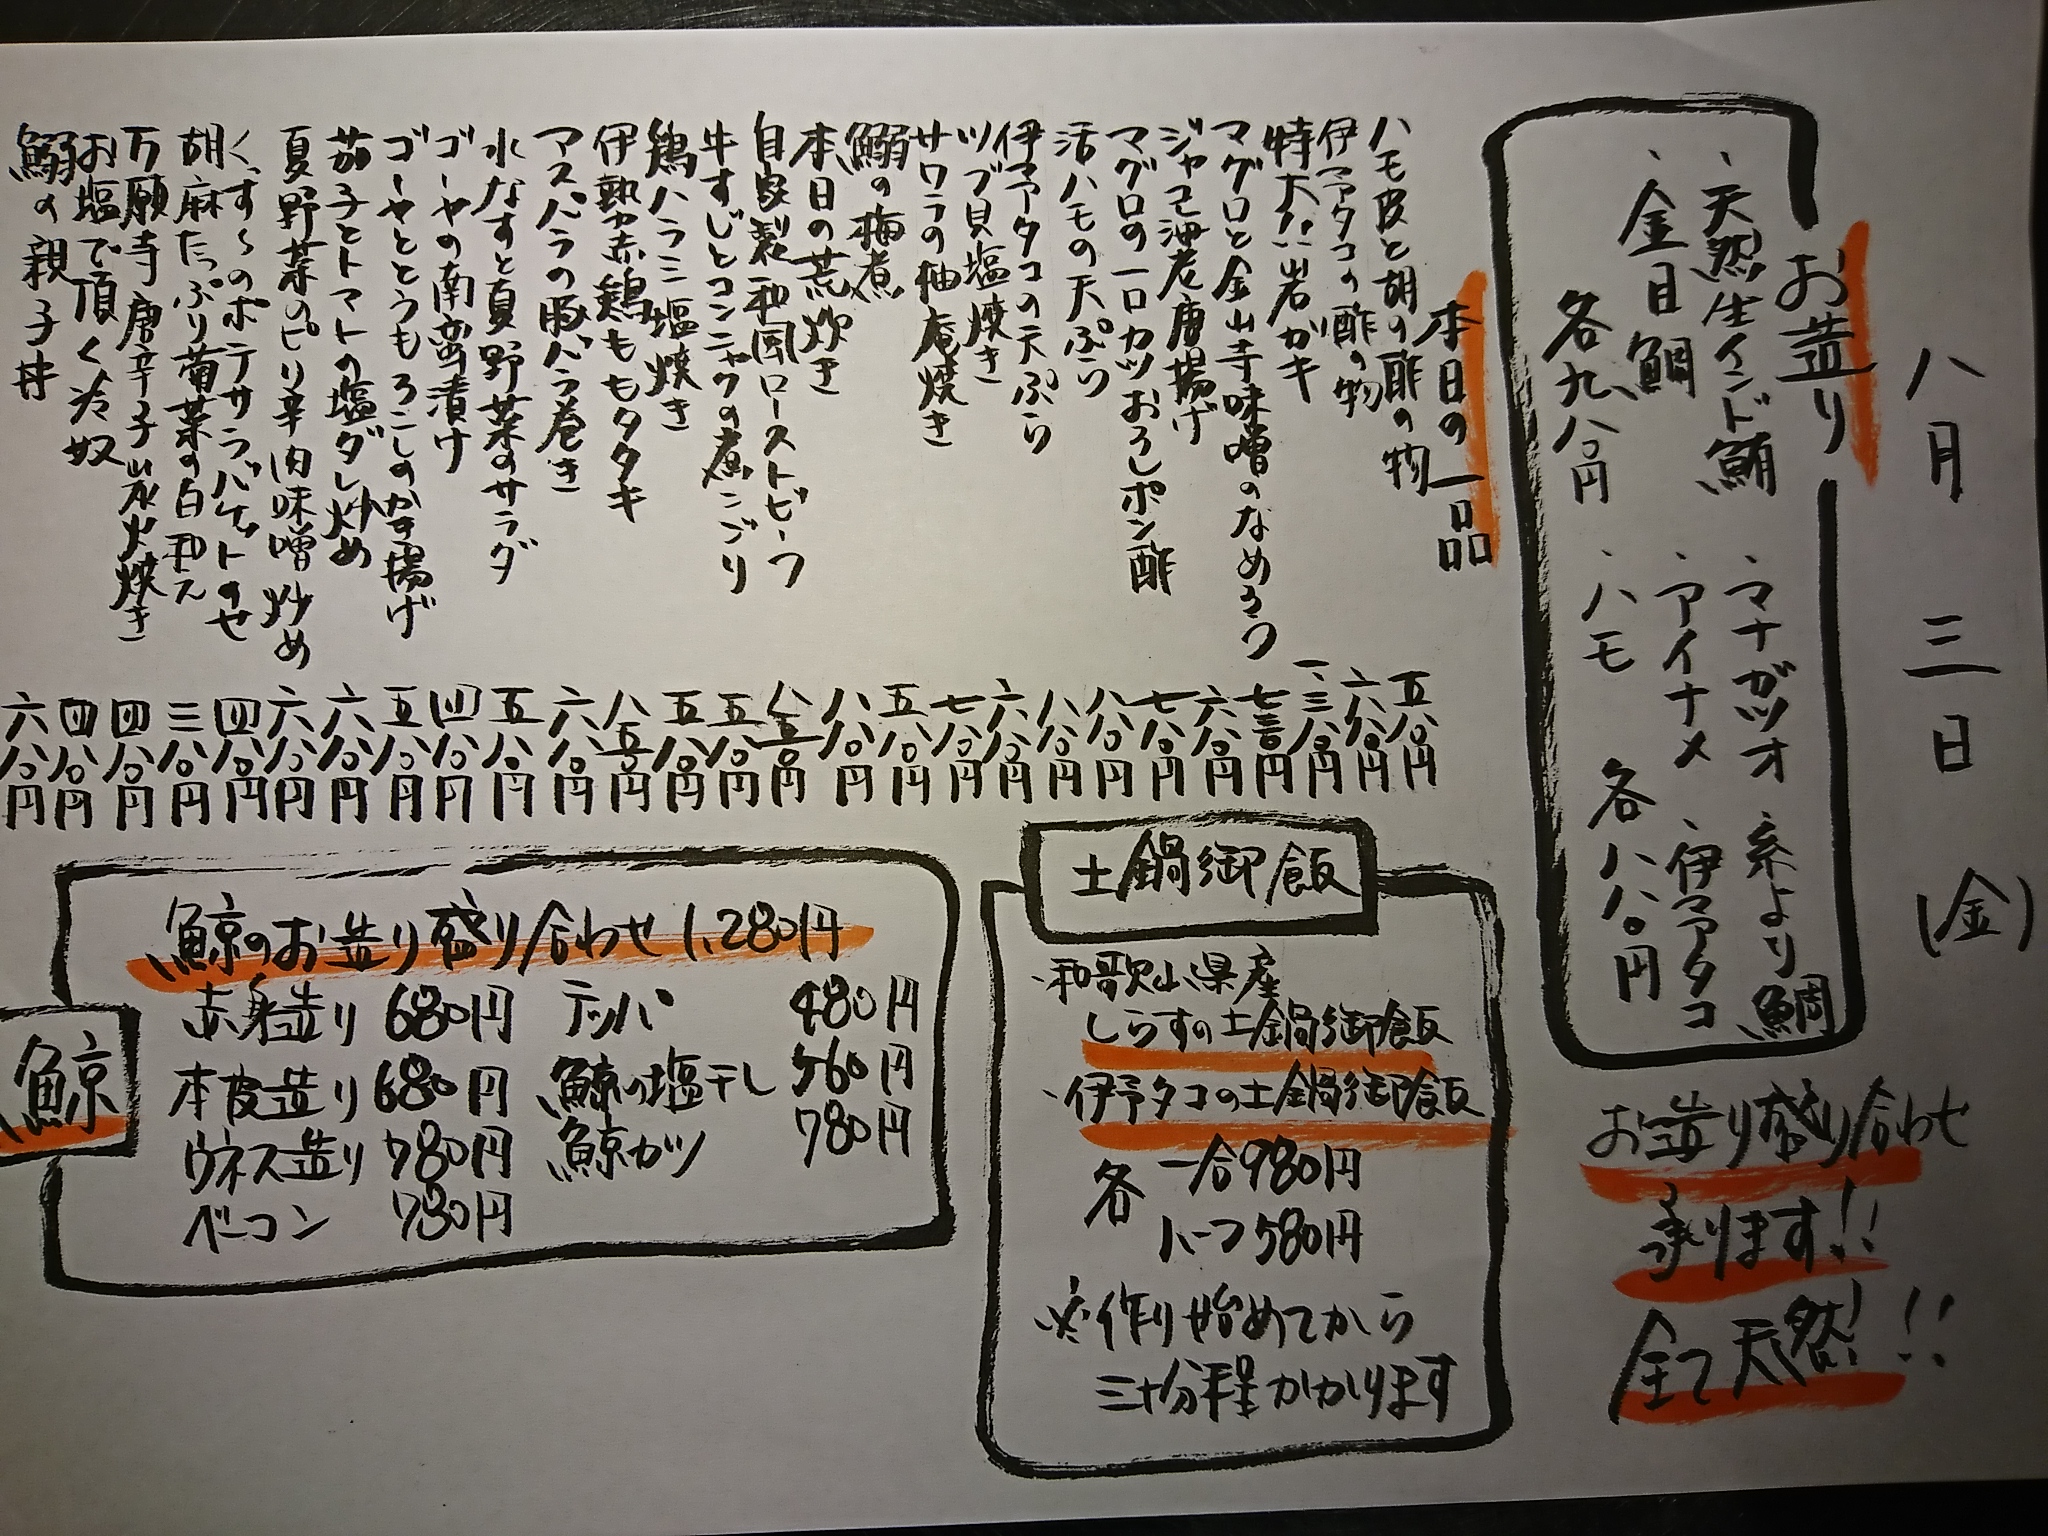 八月三日(金)
お造り
・天然生インド鮪
・金目鯛
各九八〇円
・マナガツオ
・糸より鯛
・アイナメ
・伊予タコ
・ハモ
各八八〇円
お造り盛り合わせ
承ります!!
全て天然!!!
本日の一品
ハモ皮と胡の酢の物 五八〇円
伊予タコの酢の物 六八〇円
特大!!岩ガキ 一、三八〇円
マグロと金山寺味噌のなめろう 七三〇円
ジャコ海老唐揚げ 六八〇円
マグロの一口カツおろしポン酢 七八〇円
活ハモの天ぷら 八八〇円
伊予タコの天ぷら 八八〇円
ツブ貝塩焼き 六八〇円
サワラの柚庵焼き 七八〇円
鰯の梅煮 五八〇円
本日の荒炊き 八八〇円
自家製和風ローストビーフ 八五〇円
牛すじとコンニャクの煮こごり 五八〇円
鶏ハラミ塩焼き 五八〇円
伊勢赤鶏ももタタキ 八五〇円
アスパラの豚バラ巻き 六八〇円
水なすと夏野菜のサラダ 五八〇円
ゴーヤの南蛮漬け 四八〇円
ゴーヤととうもろこしのかき揚げ 五八〇円
茄子とトマトの塩ダレ炒め 六八〇円
夏野菜のピリ辛肉味噌炒め 六八〇円
くんすーのポテサラバゲットのせ 四八〇円
胡麻たっぷり菊菜の白和え 三八〇円
万願寺唐辛子炭火焼き 四八〇円
お塩で頂く冷奴 四八〇円
鰯の親子丼 六八〇円
土鍋御飯
・和歌山県産
しらすの土鍋御飯
・伊予タコの土鍋御飯
各 一合980円
ハーフ580円
※作り始めてから
三十分程かかります
鯨
鯨のお造り盛り合わせ 1,280円
赤身造り 680円
本皮造り 680円
ウネス造り 780円
ベーコン 780円
テッパ 480円
鯨の塩干し 560円
鯨カツ 780円